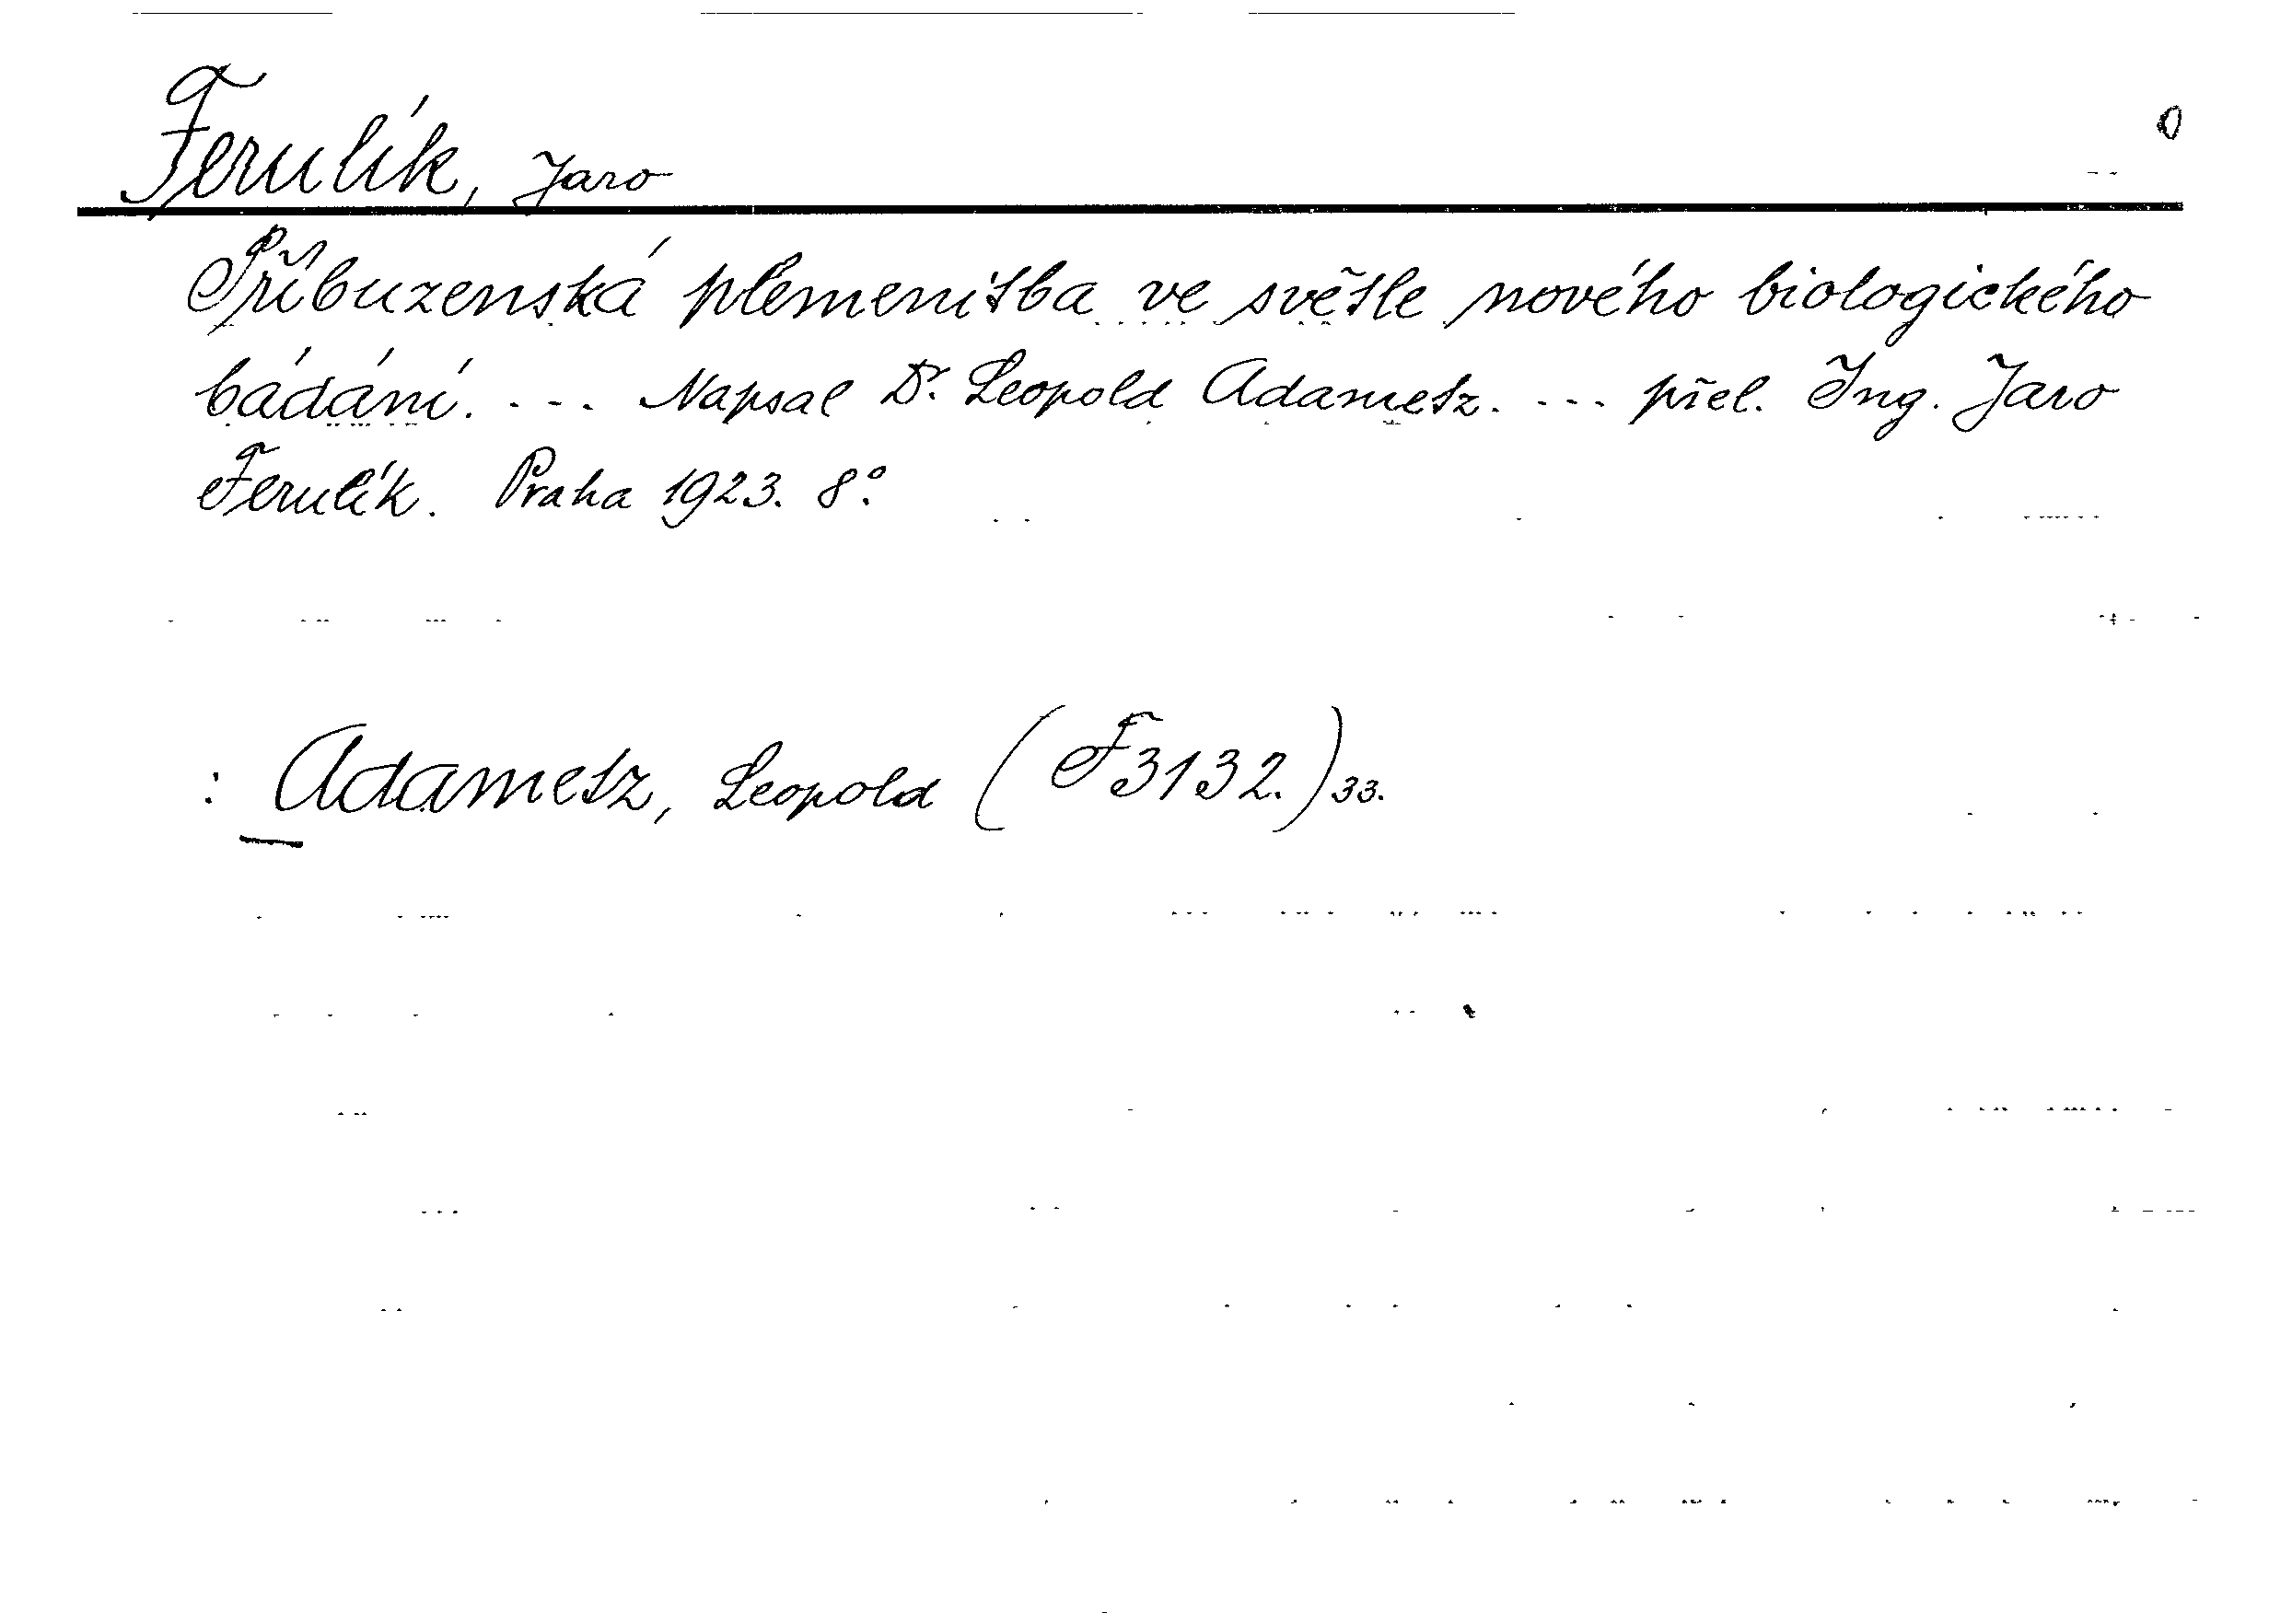 Ferulík, Jaro
Příbuzenská plemenitba ve světle nového biologického
bádání. - - . Napsal Dr. Leopold Adametz. - - - přel. Ing. Jaro
Ferulík. Praha 1923. 8°.
: Adametz, Leopold (F3132.)33.